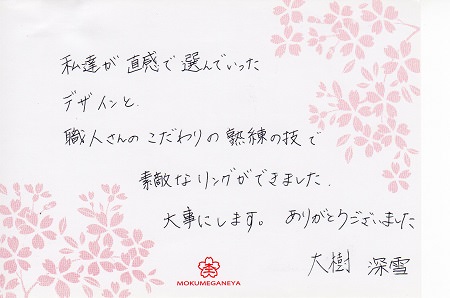 私達が 直感で 選んでいった
デザインと
職人さんの こだわりの 熟練の技で
素敵なリングができました.
大事にします。 ありがとうございました
大樹 深雪
MOKUMEGANEYA